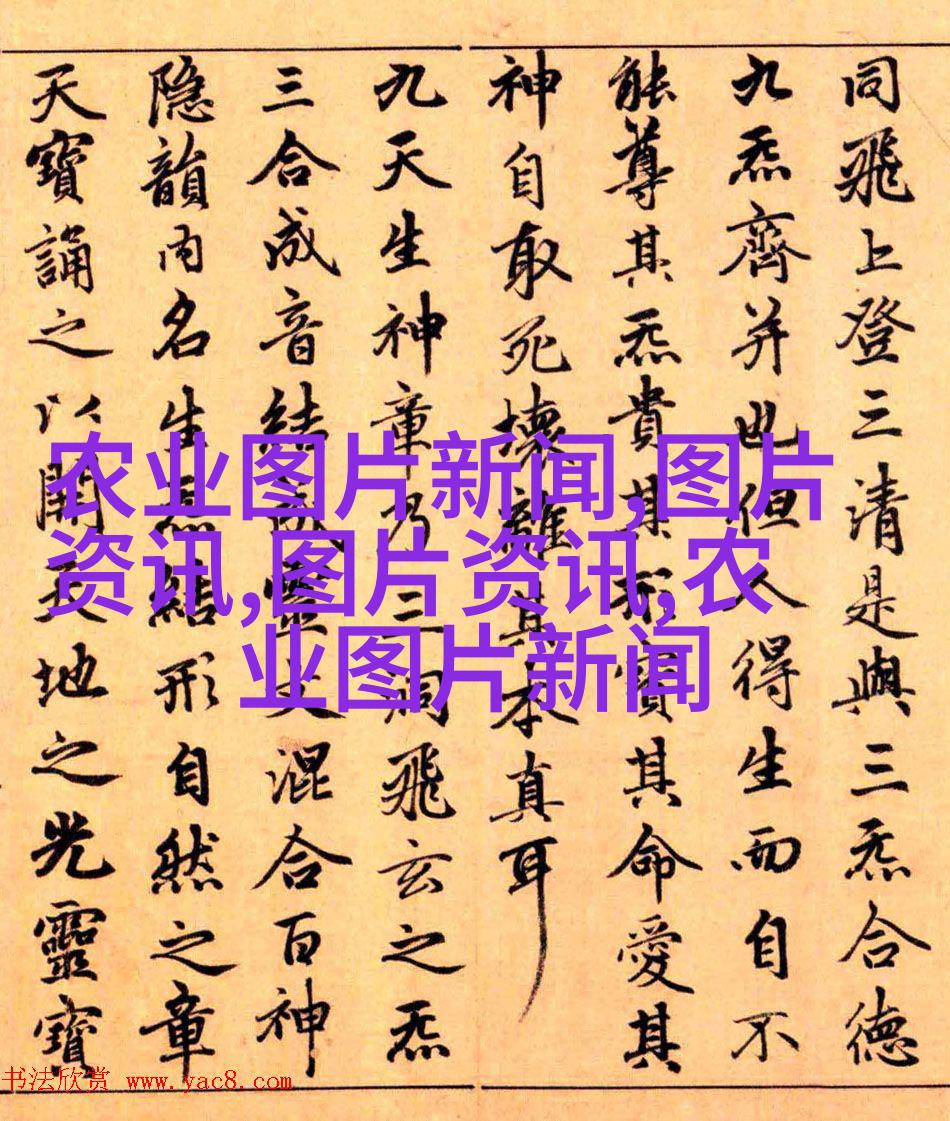 同飛上登三清是與三炁合德
九炁齊并也但人得生而自不
能尊其炁貴其形寶其命愛其
神自取死壞離其本真耳
九天生神章乃三洞飛玄之炁
三合成音結成靈文混合百神
隐韻内名生炁結形自然之章
天寶誦之以開天地之光靈寶
农业图片新闻,图片
资讯,图片资讯,农
业图片新闻
书法欣赏 www.yac8.com